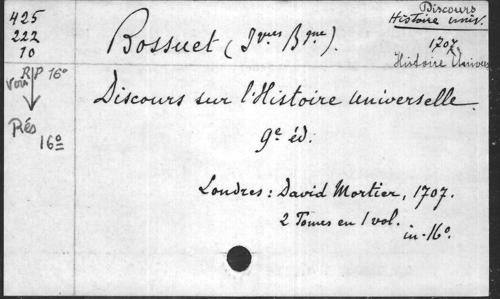 425
222
10
R P 16º
Voir
Rés
16º
Discours
Histoire Univ.
1707
Histoire Univers
Bossuet (Jques Bgne).
Discours sur l'Histoire Universelle.
9e éd.
Londres: David Mortier, 1707.
2 Tomes en 1 vol.
in-16º.